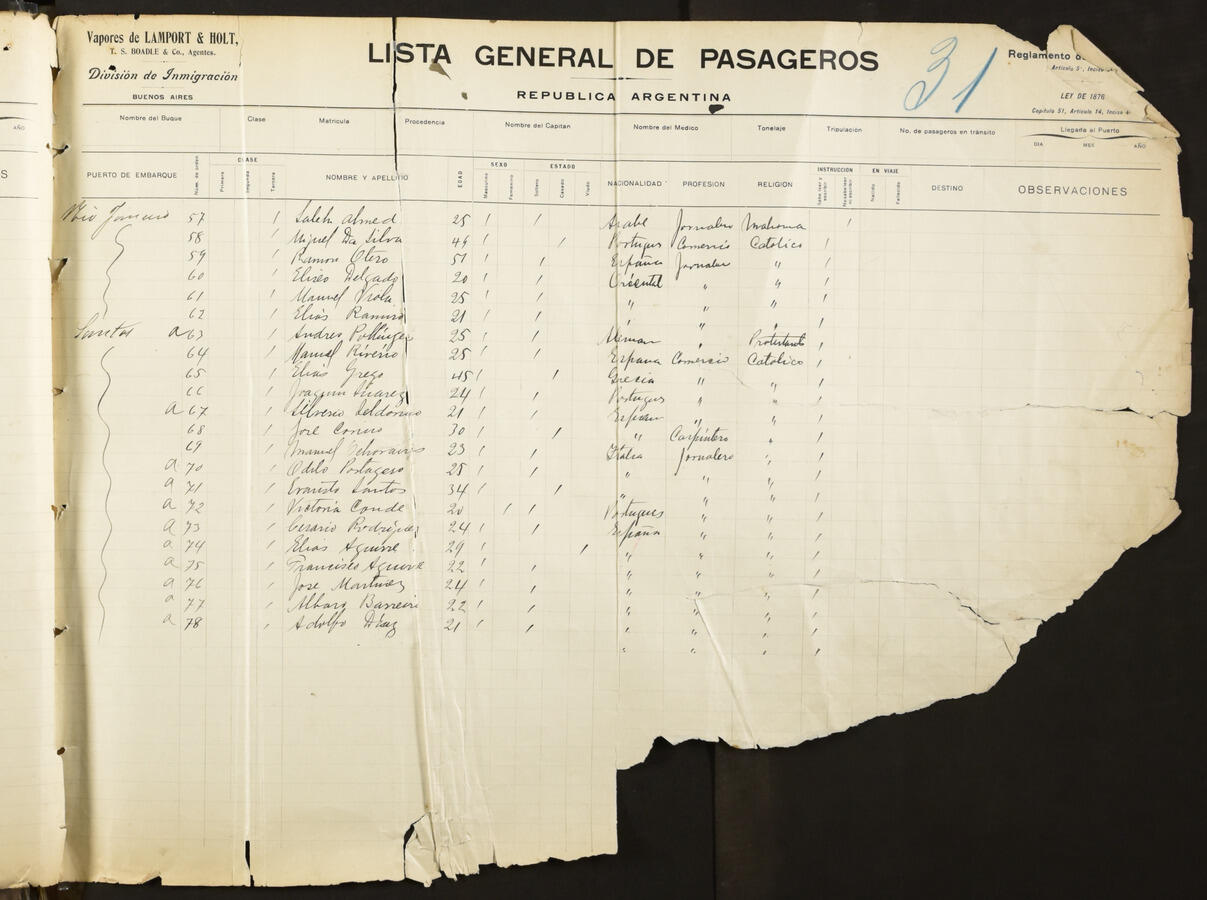 Vapores de LAMPORT & HOLT,
T. S. BOADLE & Co., Agentes.
División de Inmigración
BUENOS AIRES
LISTA GENERAL DE PASAGEROS
REPUBLICA ARGENTINA
31
Reglamento
Artículo 5°, Inciso
LEY DE 1876
Capítulo 51, Artículo 14, Inciso 4
Nombre del Buque Clase Matricula Procedencia Nombre del Capitan Nombre del Medico Tonelaje Tripulación No. de pasageros en tránsito Llegada al Puerto
DIA MES AÑO
AÑO
S
PUERTO DE EMBARQUE Num. de orden CLASE Primera Segunda Tercera NOMBRE Y APELLIDO EDAD SEXO Masculino Femenino ESTADO Soltero Casado Viudo NACIONALIDAD PROFESION RELIGION INSTRUCCIÓN EN VIAJE Nacido Fallecido DESTINO OBSERVACIONES
Rio Janeiro 57 / Saleh Ahmed 25 / / Arabe Jornalero Mahoma /
58 / Miguel Da Silva 49 / / Portugues Comercio Catolico /
59 / Ramon Otero 51 / / España Jornalero " /
60 / Eliseo Delgado 20 / / Oriental " " /
61 / Manuel Viola 25 / / " " " /
62 / Elias Ramiro 21 / / " " /
Santos a 63 / Andres 25 / / Aleman " Protestante /
64 / Manuel Riverio 25 / / España Comercio Catolico /
65 / Elias Grego 45 / / Grecia " " /
66 / Joaquin Suarez 24 / / Portugues " " /
a 67 / Silverio 21 / / España " " /
68 / José 30 / / " Carpintero " /
69 / Manuel 23 / / Italia Jornalero " /
a 70 / Odilo 25 / / " " " /
a 71 / Evaristo Santos 34 / / " " " /
a 72 / Victoria Conde 20 / / Portugues " " /
a 73 / Cesario Rodriguez 24 / / España " " /
a 74 / Elias Aguirre 29 / / " " " /
a 75 / Francisco Aguirre 22 / / " " " /
a 76 / Jose Martinez 24 / / " " " /
a 77 / Alvaro Barreiro 22 / / " " " /
a 78 / Adolfo Diaz 21 / / " " " /